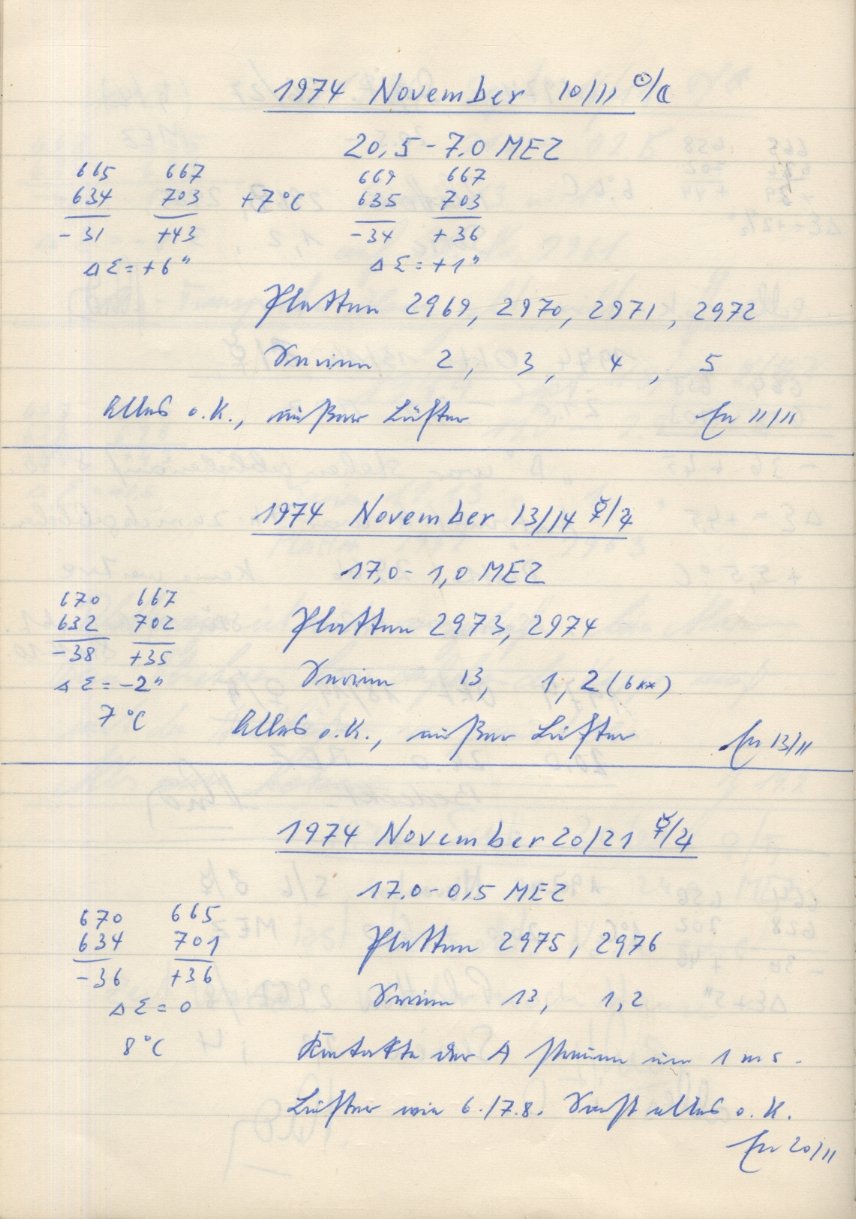 1974 November 10/11 ☉/☾
20,5-7.0 MEZ
665 667 669 667
634 703 +7°C 635 703
-31 +43 -34 +36
ΔΣ=+6" ΔΣ=+1"
Platten 2969, 2970, 2971, 2972
Serien 2, 3, 4, 5
Alles o.K., außer Lüfter
11/11
1974 November 13/14 ☿/♃
17,0-1,0 MEZ
670 667
632 702
-38 +35
ΔΣ=-2"
7°C
Platten 2973, 2974
Serien 13, 1, 2 (6xx)
Alles o.K., außer Lüfter
13/11
1974 November 20/21 ☿/♃
17.0-0,5 MEZ
670 665
634 701
-36 +36
ΔΣ=0
8°C
Platten 2975, 2976
Serien 13, 1,2
Kontakte der A um 1 ms.
Lüfter wie 6./7.8. Sonst alles o.K.
20/11